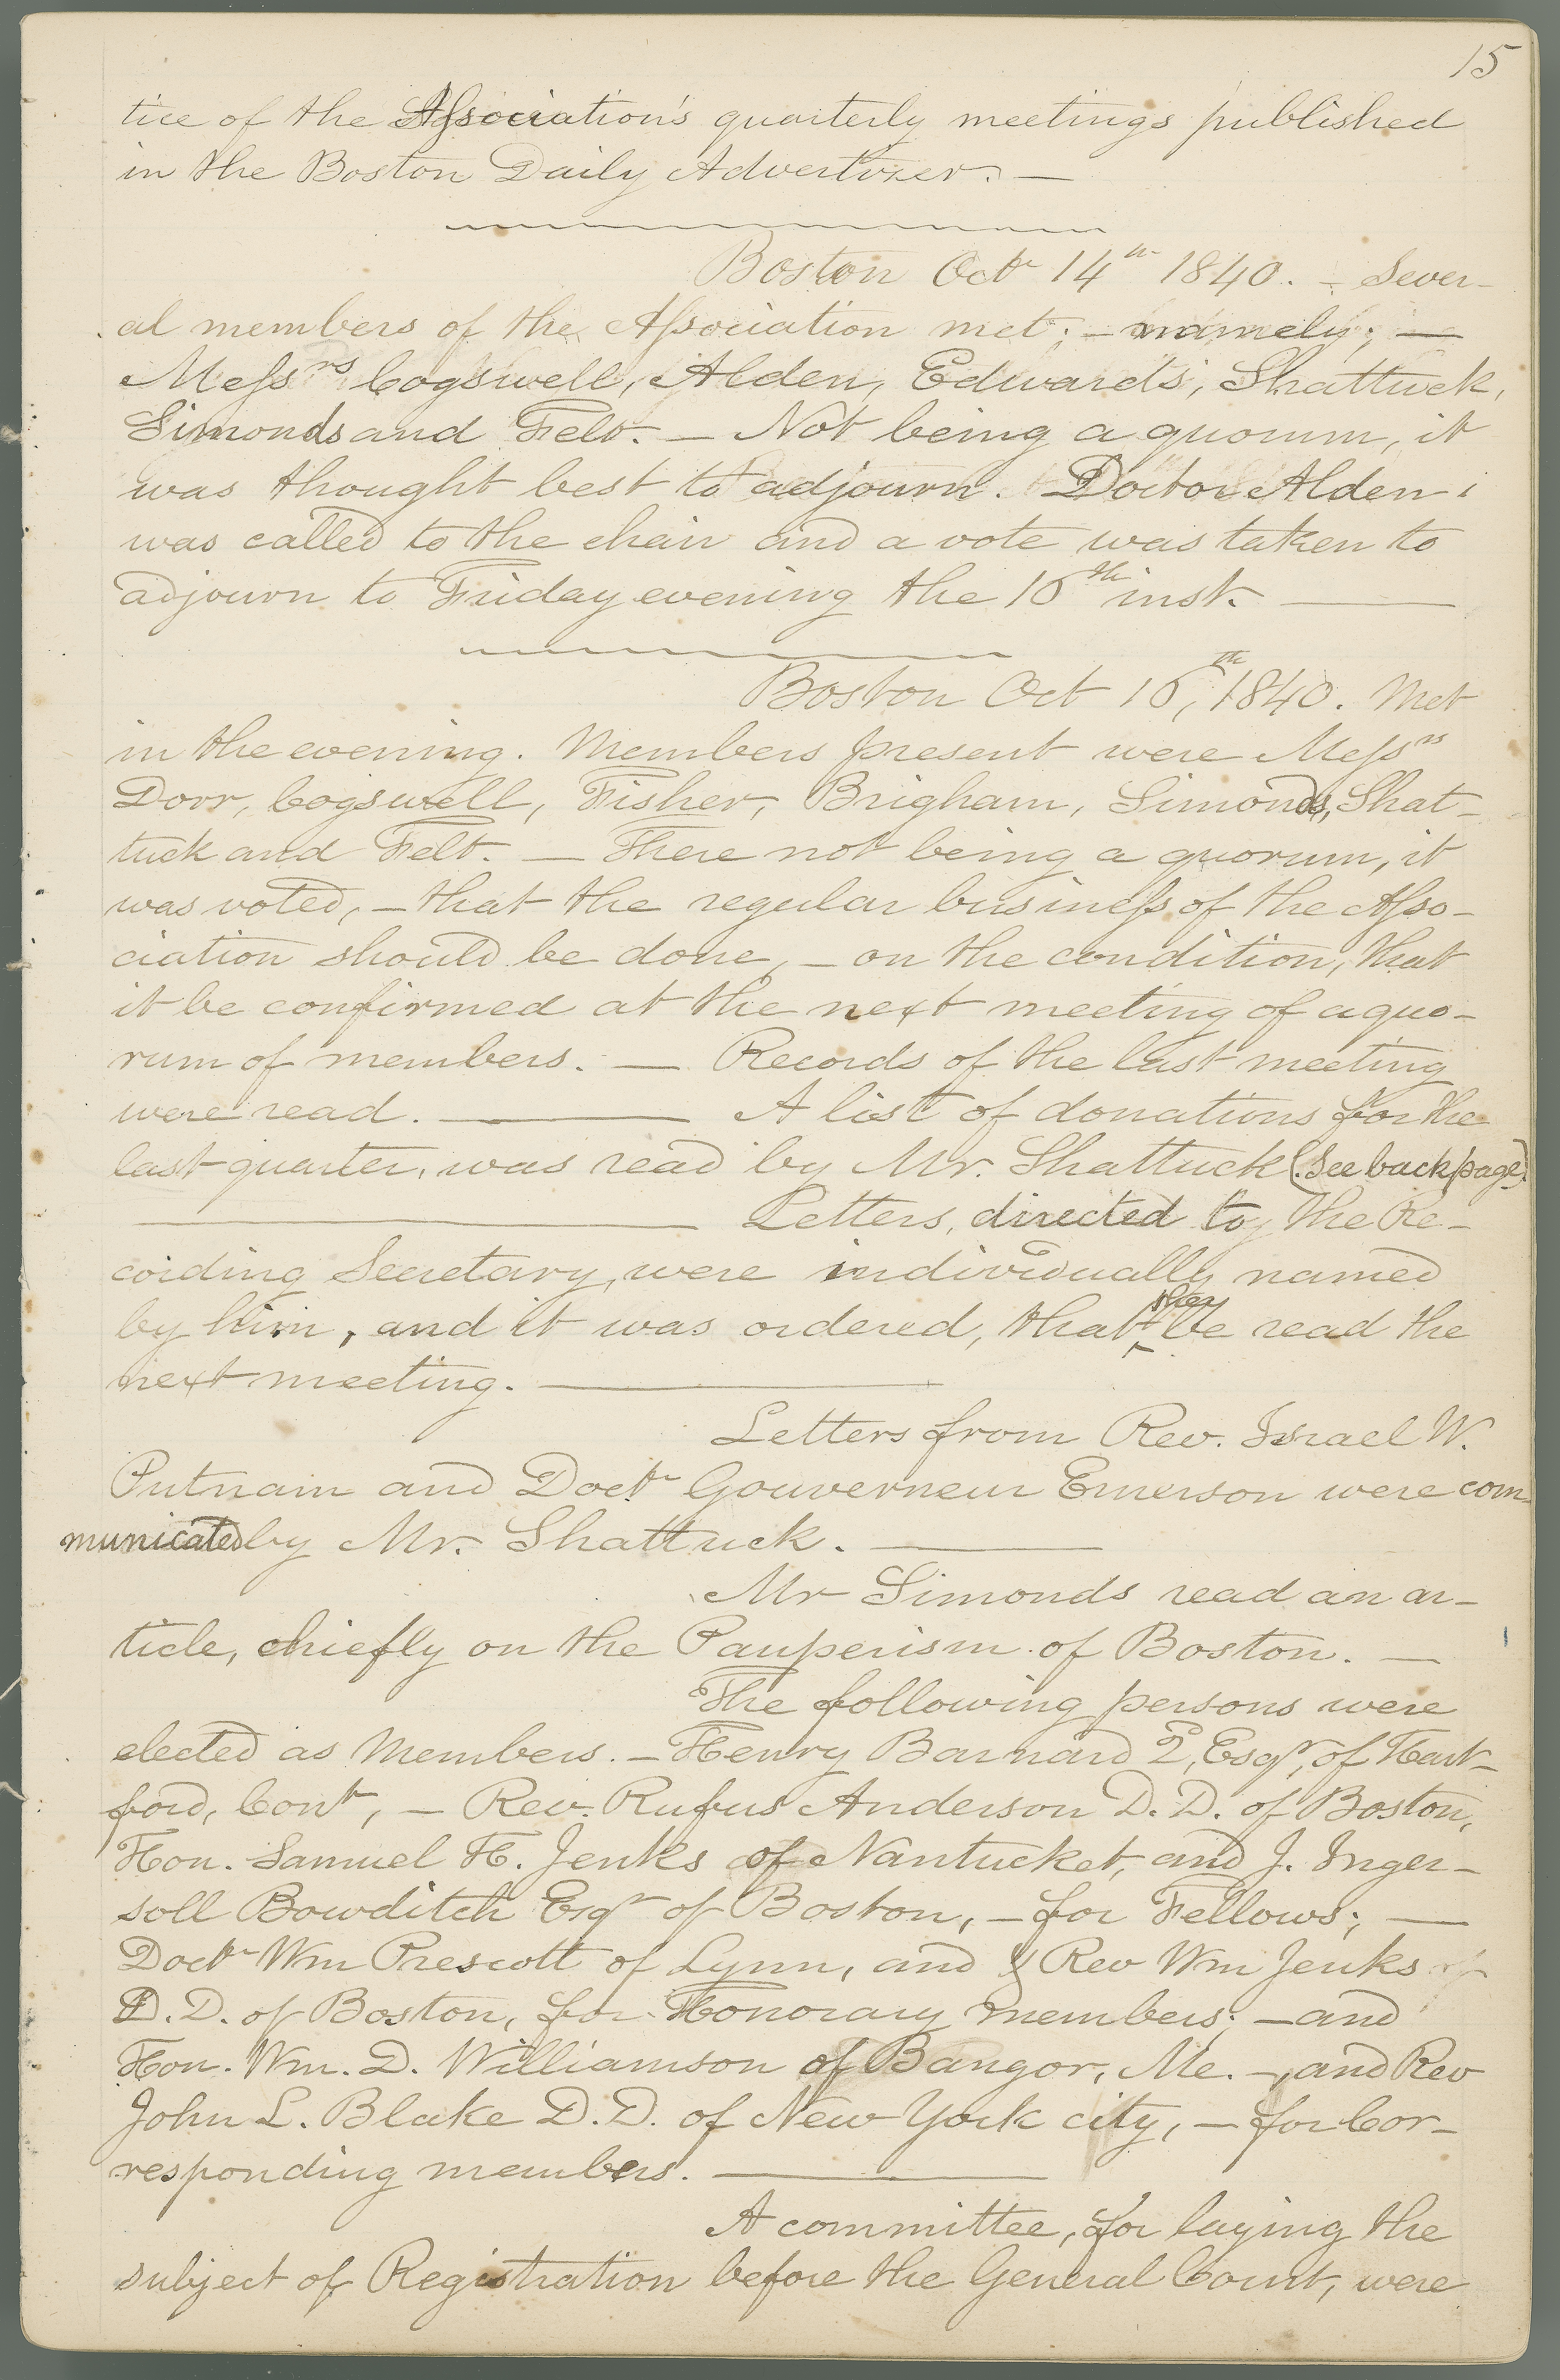 15
tice of the Association's quarterly meetings published
in the Boston Daily Advertiser. —
Boston Octr 14th 1840. – Sever-
al members of the Association met; – namely; —
Messrs Cogswell, Alden, Edwards, Shattuck,
Simonds and Felt. — Not being a quorum, it
was thought best to adjourn. Doctor Alden
was called to the chair and a vote was taken to
adjourn to Friday evening the 16th inst. —
Boston Oct 16th, 1840. Met
in the evening. Members present were Messrs
Dorr, Cogswell, Fisher, Brigham, Simonds, Shat-
tuck and Felt. — There not being a quorum, it
was voted, – that the regular business of the Asso-
ciation should be done, – on the condition, that
it be confirmed at the next meeting of a quo-
rum of members. — Records of the last meeting
were read. — A list of donations for the
last quarter, was read by Mr. Shattuck (See back page)
— Letters, directed to the Re-
cording Secretary, were individually named
by him, and it was ordered, that they be read the
next meeting. —
Letters from Rev. Israel W.
Putnam and Doctr Gouverneur Emerson were com-
municated by Mr. Shattuck. —
Mr Simonds read an ar-
ticle, chiefly on the Pauperism of Boston. —
The following persons were
elected as Members. – Henry Barnard 2, Esqr, of Hart-
ford, Cont, – Rev. Rufus Anderson D. D. of Boston,
Hon. Samuel H. Jenks of Nantucket, and J. Inger-
soll Bowditch Esqr of Boston, – for Fellows; —
Doctr Wm Prescott of Lynn, and Rev Wm Jenks
D. D. of Boston, for Honorary members; – and
Hon. Wm. D. Williamson of Bangor, Me. –, and Rev
John L. Blake D. D. of New York city, – for Cor-
responding members. —
A committee, for laying the
subject of Registration before the General Court, were